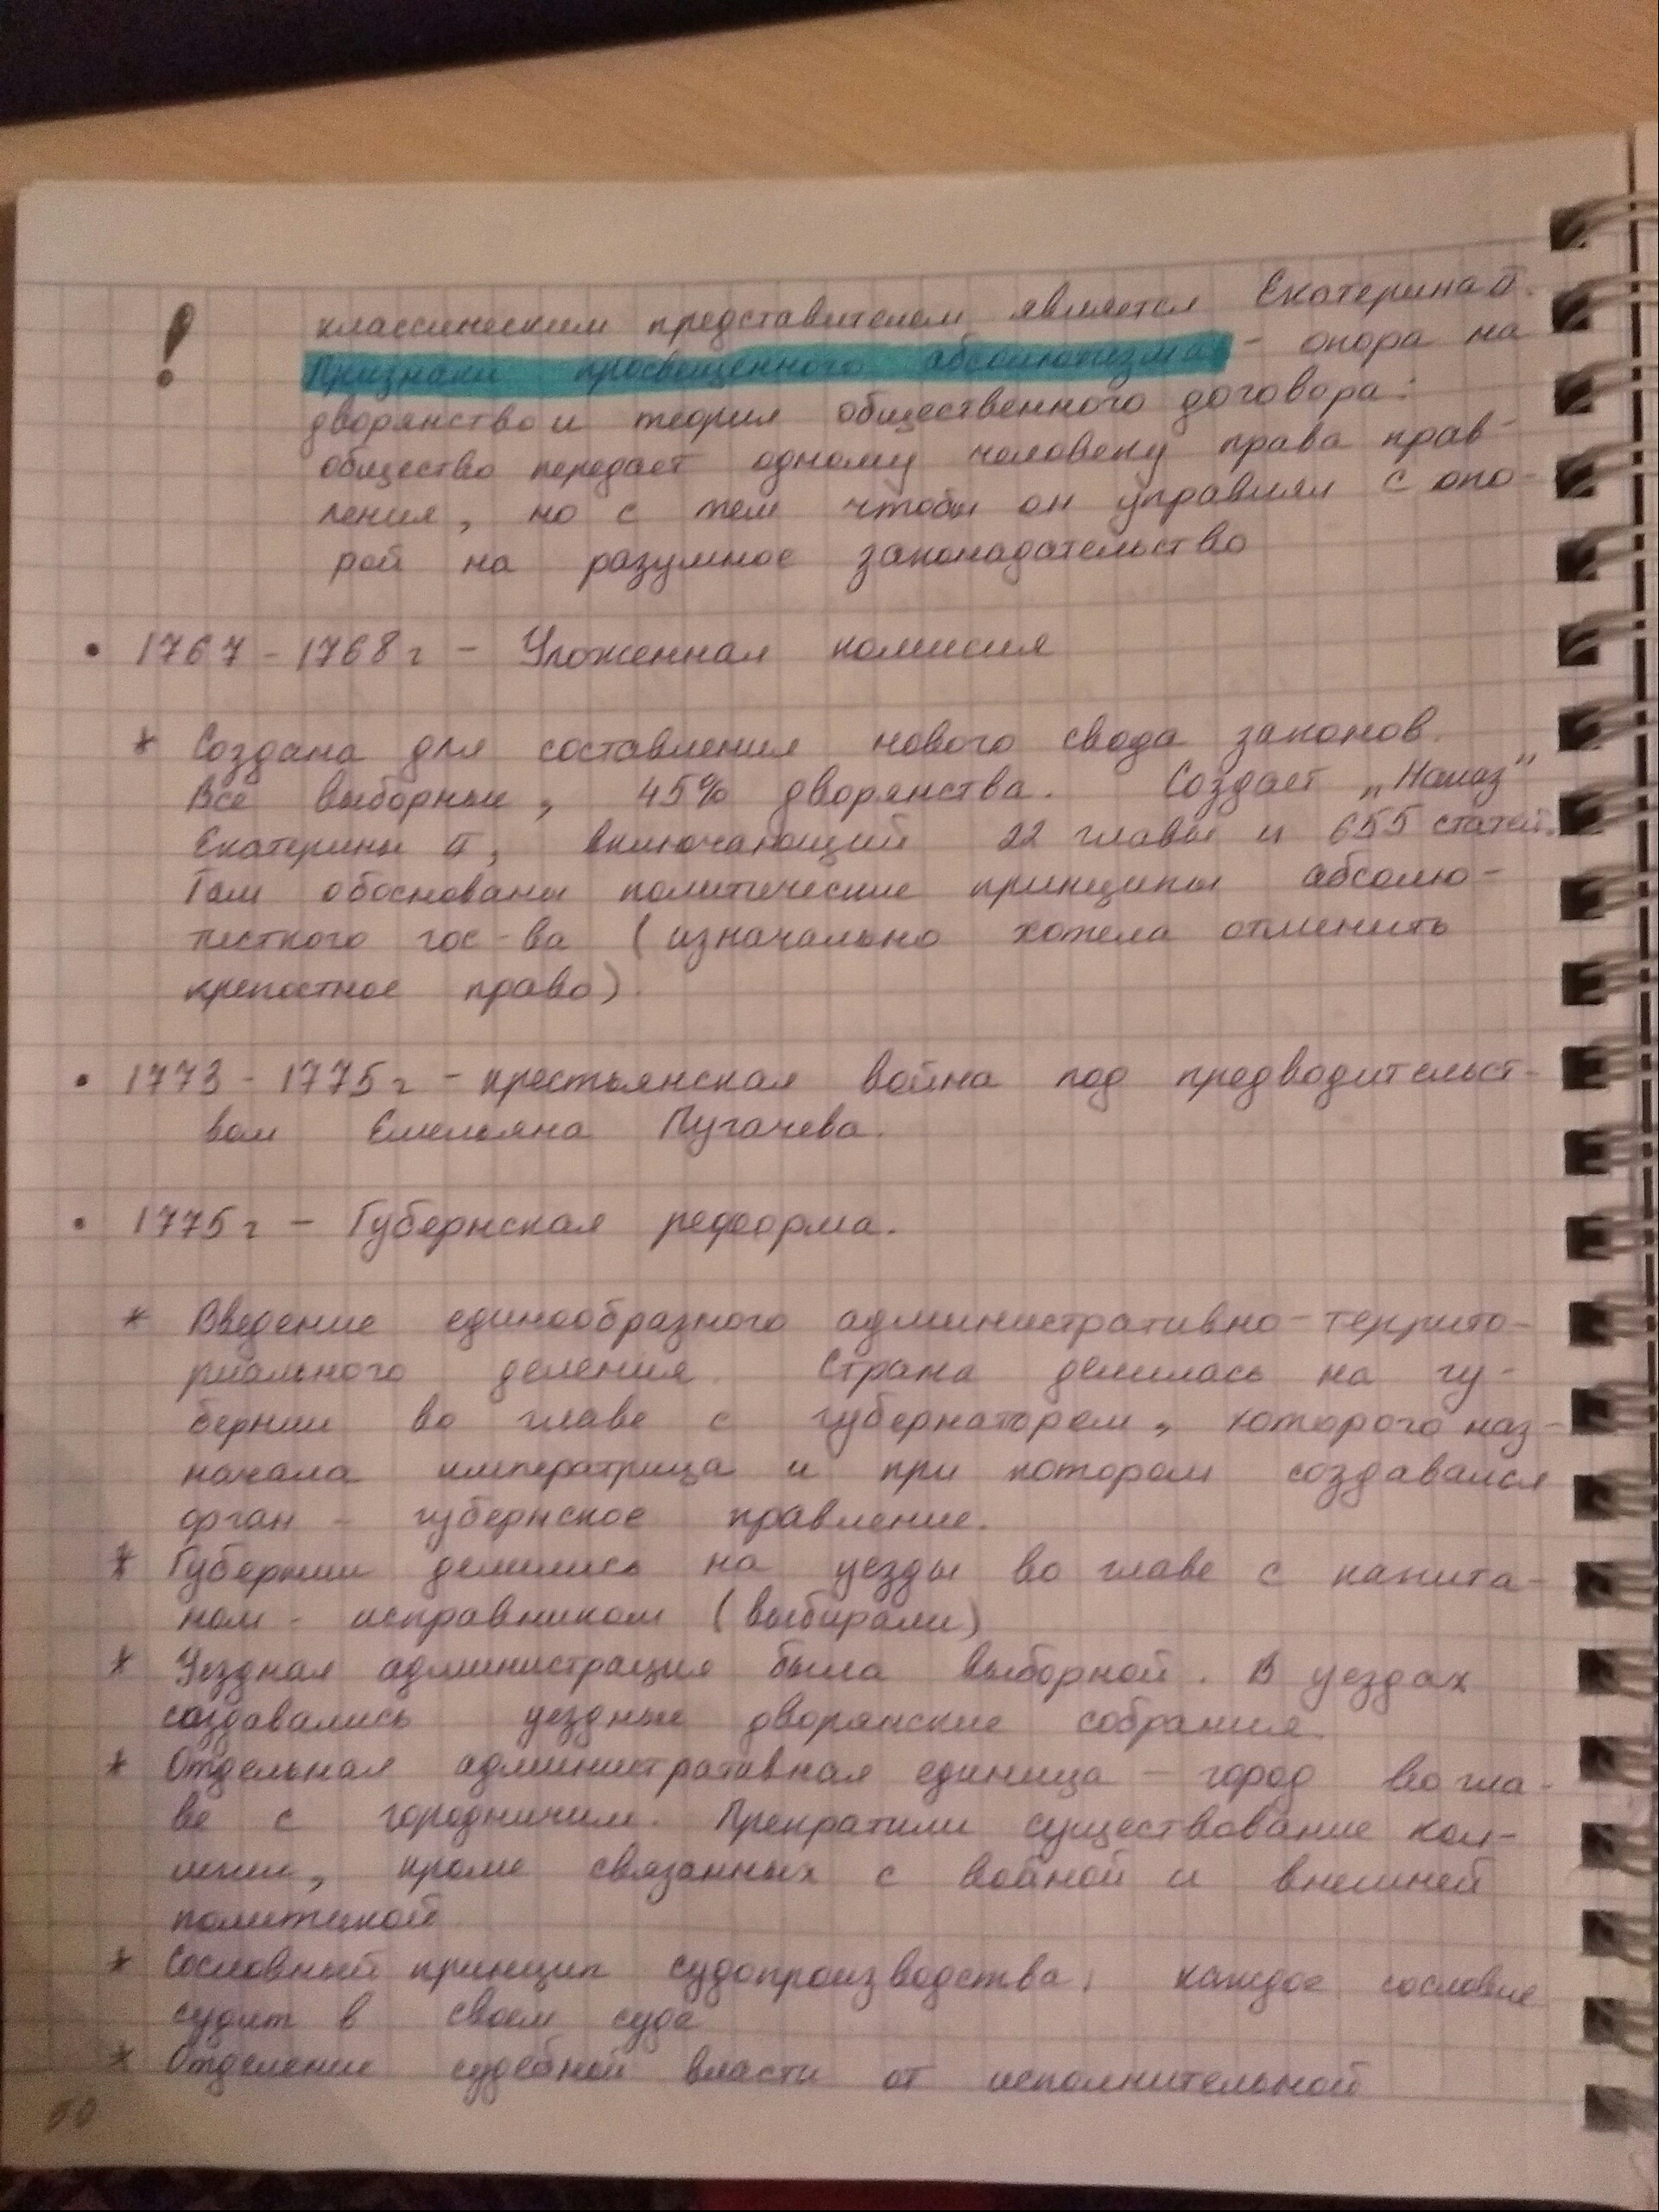 ! классическим представителем является Екатерина II.
Признаки просвещенного абсолютизма - опора на
дворянство и теория общественного договора:
общество передает одному человеку права прав-
ления, но с тем чтобы он управлял с опо-
рой на разумное законадательство
• 1767 - 1768 г - Уложенная комисия
* Создана для составления нового свода законов.
Все выборные, 45% дворянства. Создает „Наказ"
Екатерины II, включающий 22 главы и 655 статей.
Там обоснованы политические принципы абсолю-
тисткого гос-ва (изначально хотела отменить
крепостное право).
• 1773 - 1775 г - крестьянская война под предводительст-
вом Емельяна Пугачева.
• 1775 г - Губернская реформа.
* Введение единообразного административно-террито-
риального деления. Страна делилась на гу-
бернии во главе с губернатором, которого наз-
начала императрица и при котором создавался
орган - губернское правление.
* Губернии делились на уезды во главе с капита-
ном - исправником (выбирали)
* Уездная администрация была выборной. В уездах
создавались уездные дворянские собрания.
* Отдельная административная единица - город во гла-
ве с городничим. Прекратили существование кол-
легии, кроме связанных с войной и внешней
политикой
* Сословный принцип судопроизводства: каждое сословие
судит в своем суде
* Отделение судебной власти от исполнительной
50